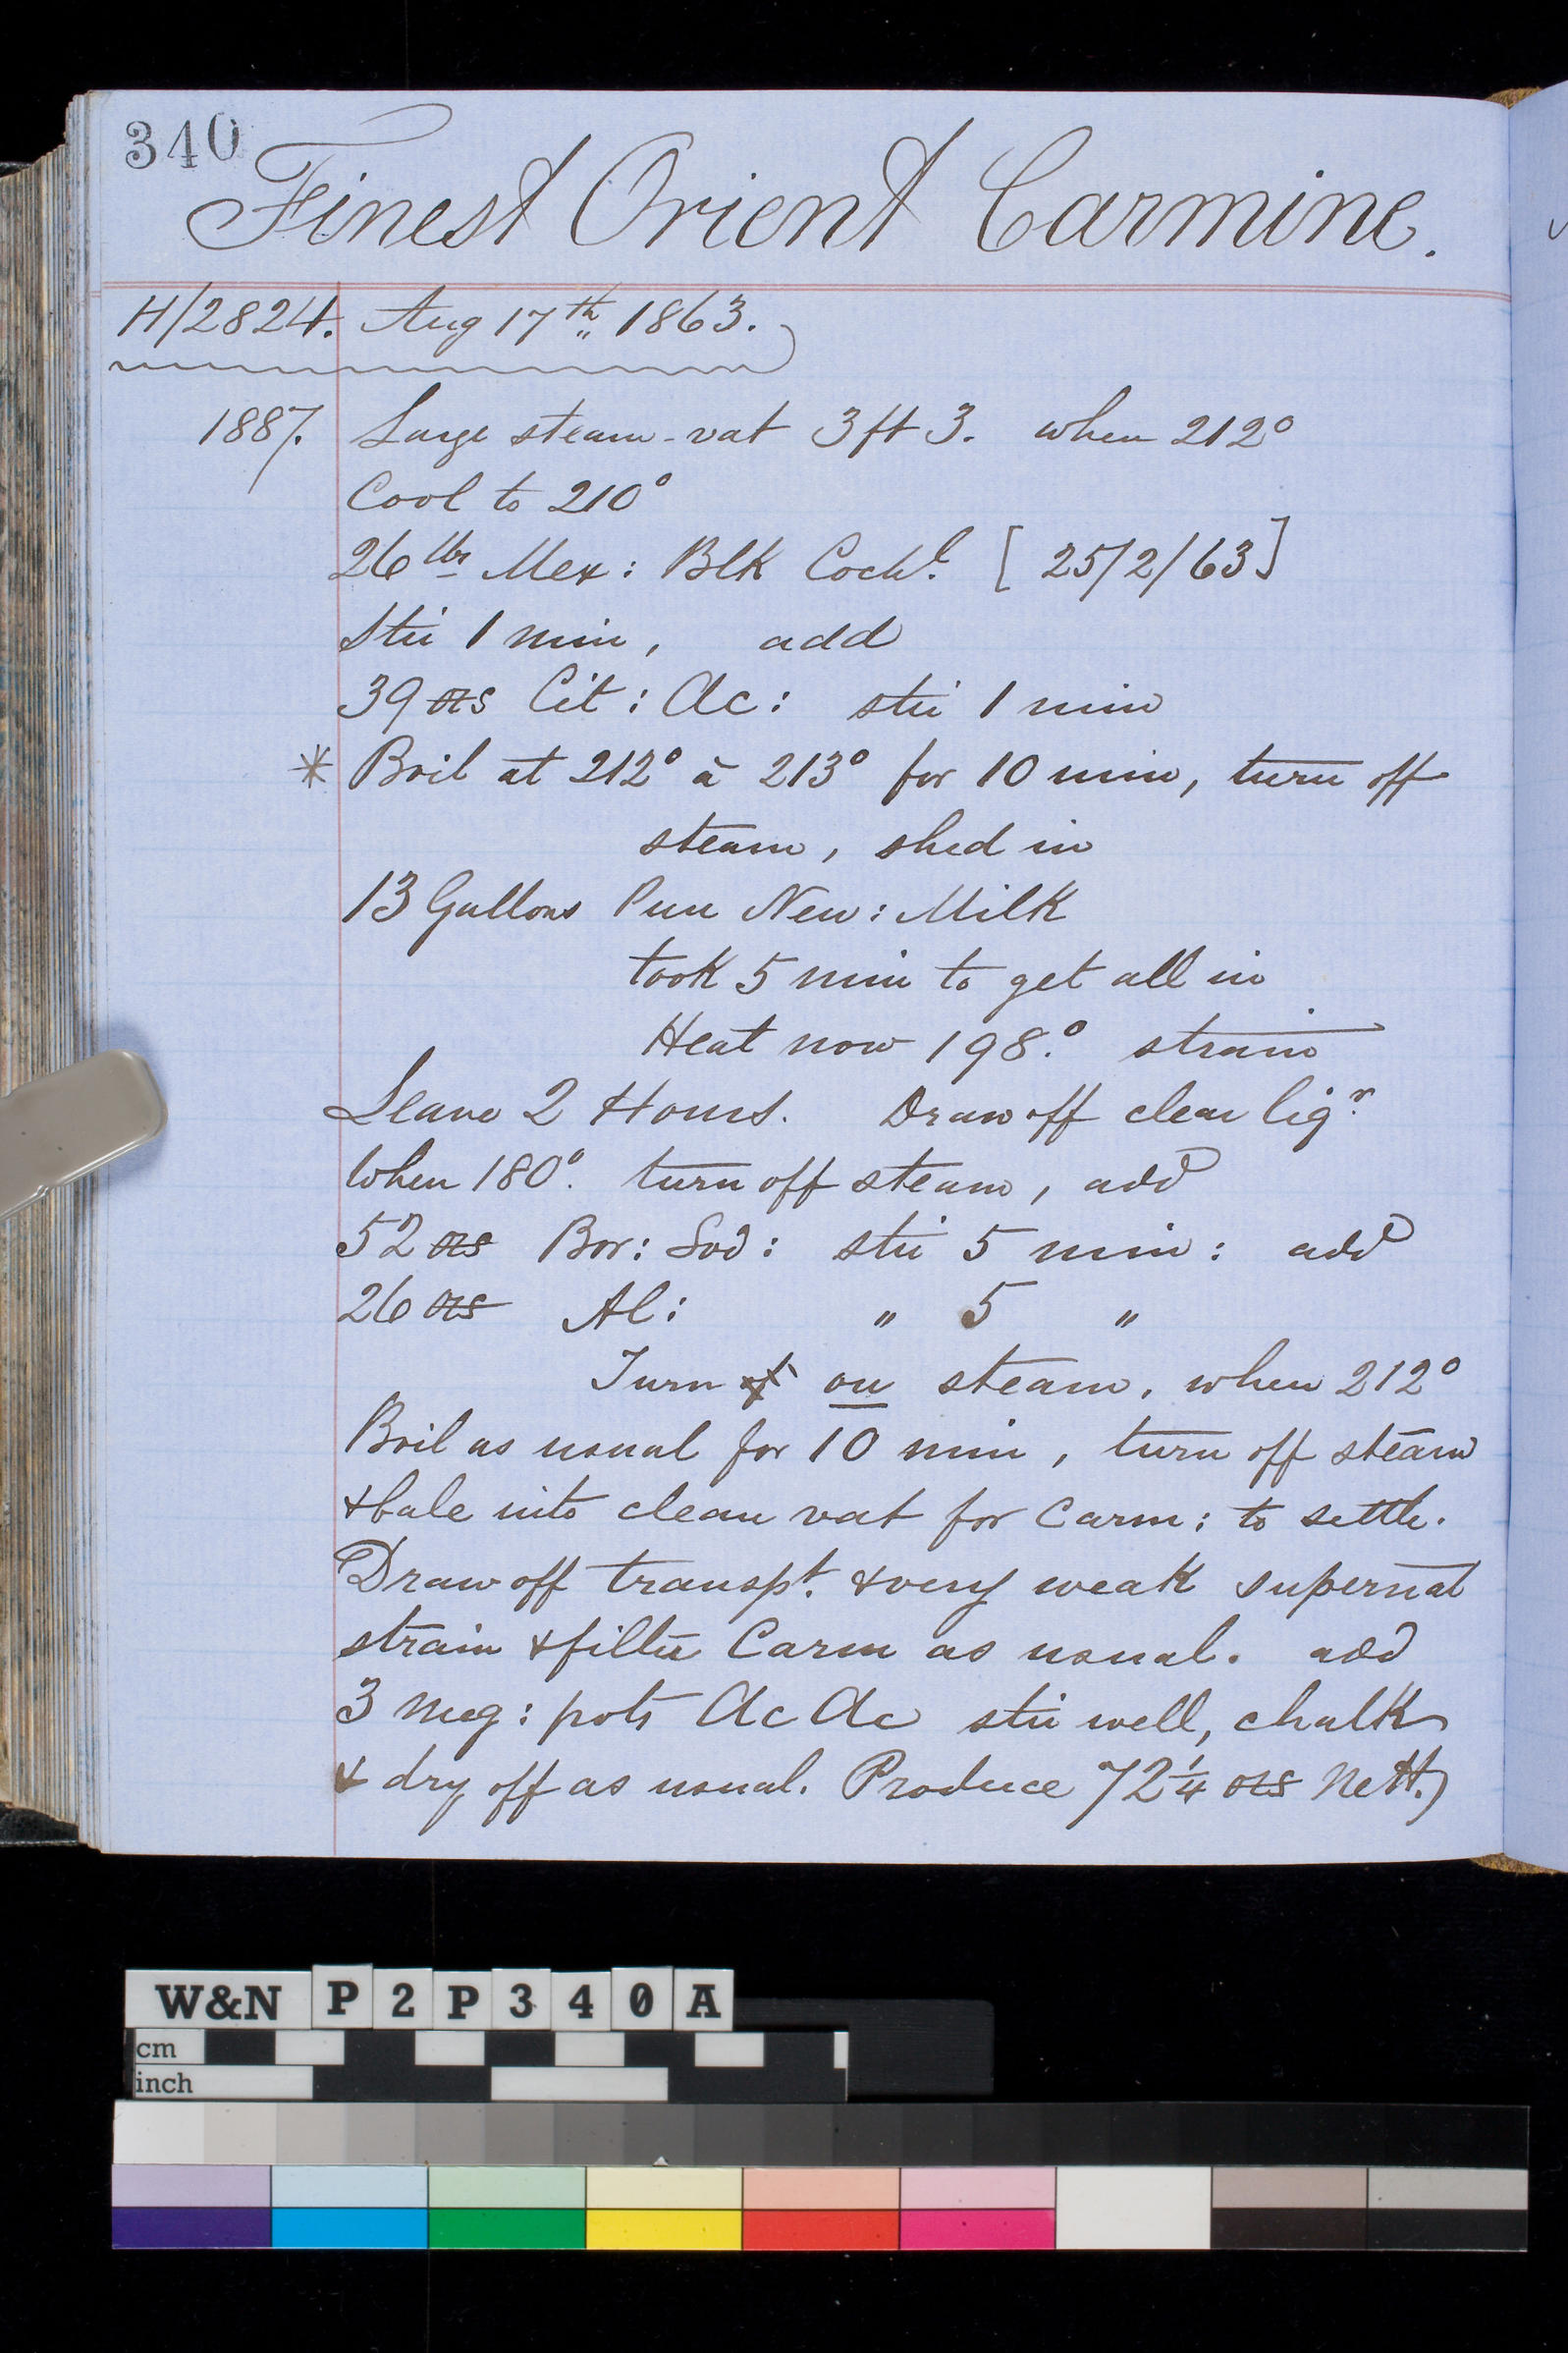 340
Finest Orient Carmine.
H/2824. Aug 17th 1863.
1887. Large steam-vat 3 ft 3. when 212°
Cool to 210°
26 lbs Mex: Blk Cochl. [25/2/63]
Stir 1 min, add
39 ozs Cit: Ac: stir 1 min
* Boil at 212° à 213° for 10 min, turn off
steam, shed in
13 Gallons Pure New: Milk
took 5 min to get all in
Heat now 198.° strain
Leave 2 Hours. Draw off clear liqr.
When 180°. turn off steam, add
52 ozs Bor: Sod: stir 5 min: add
26 ozs Al: " 5 "
Turn on steam, when 212°
Boil as usual for 10 min, turn off steam
& bale into clean vat for Carm: to settle.
Draw off transpt. & very weak supernat
strain & filter Carm as usual. add
3 meg: pots Ac Ac stir well, chalk
& dry off as usual. Produce 72 1/4 ozs Nett.
W&N P2P340A
cm
inch